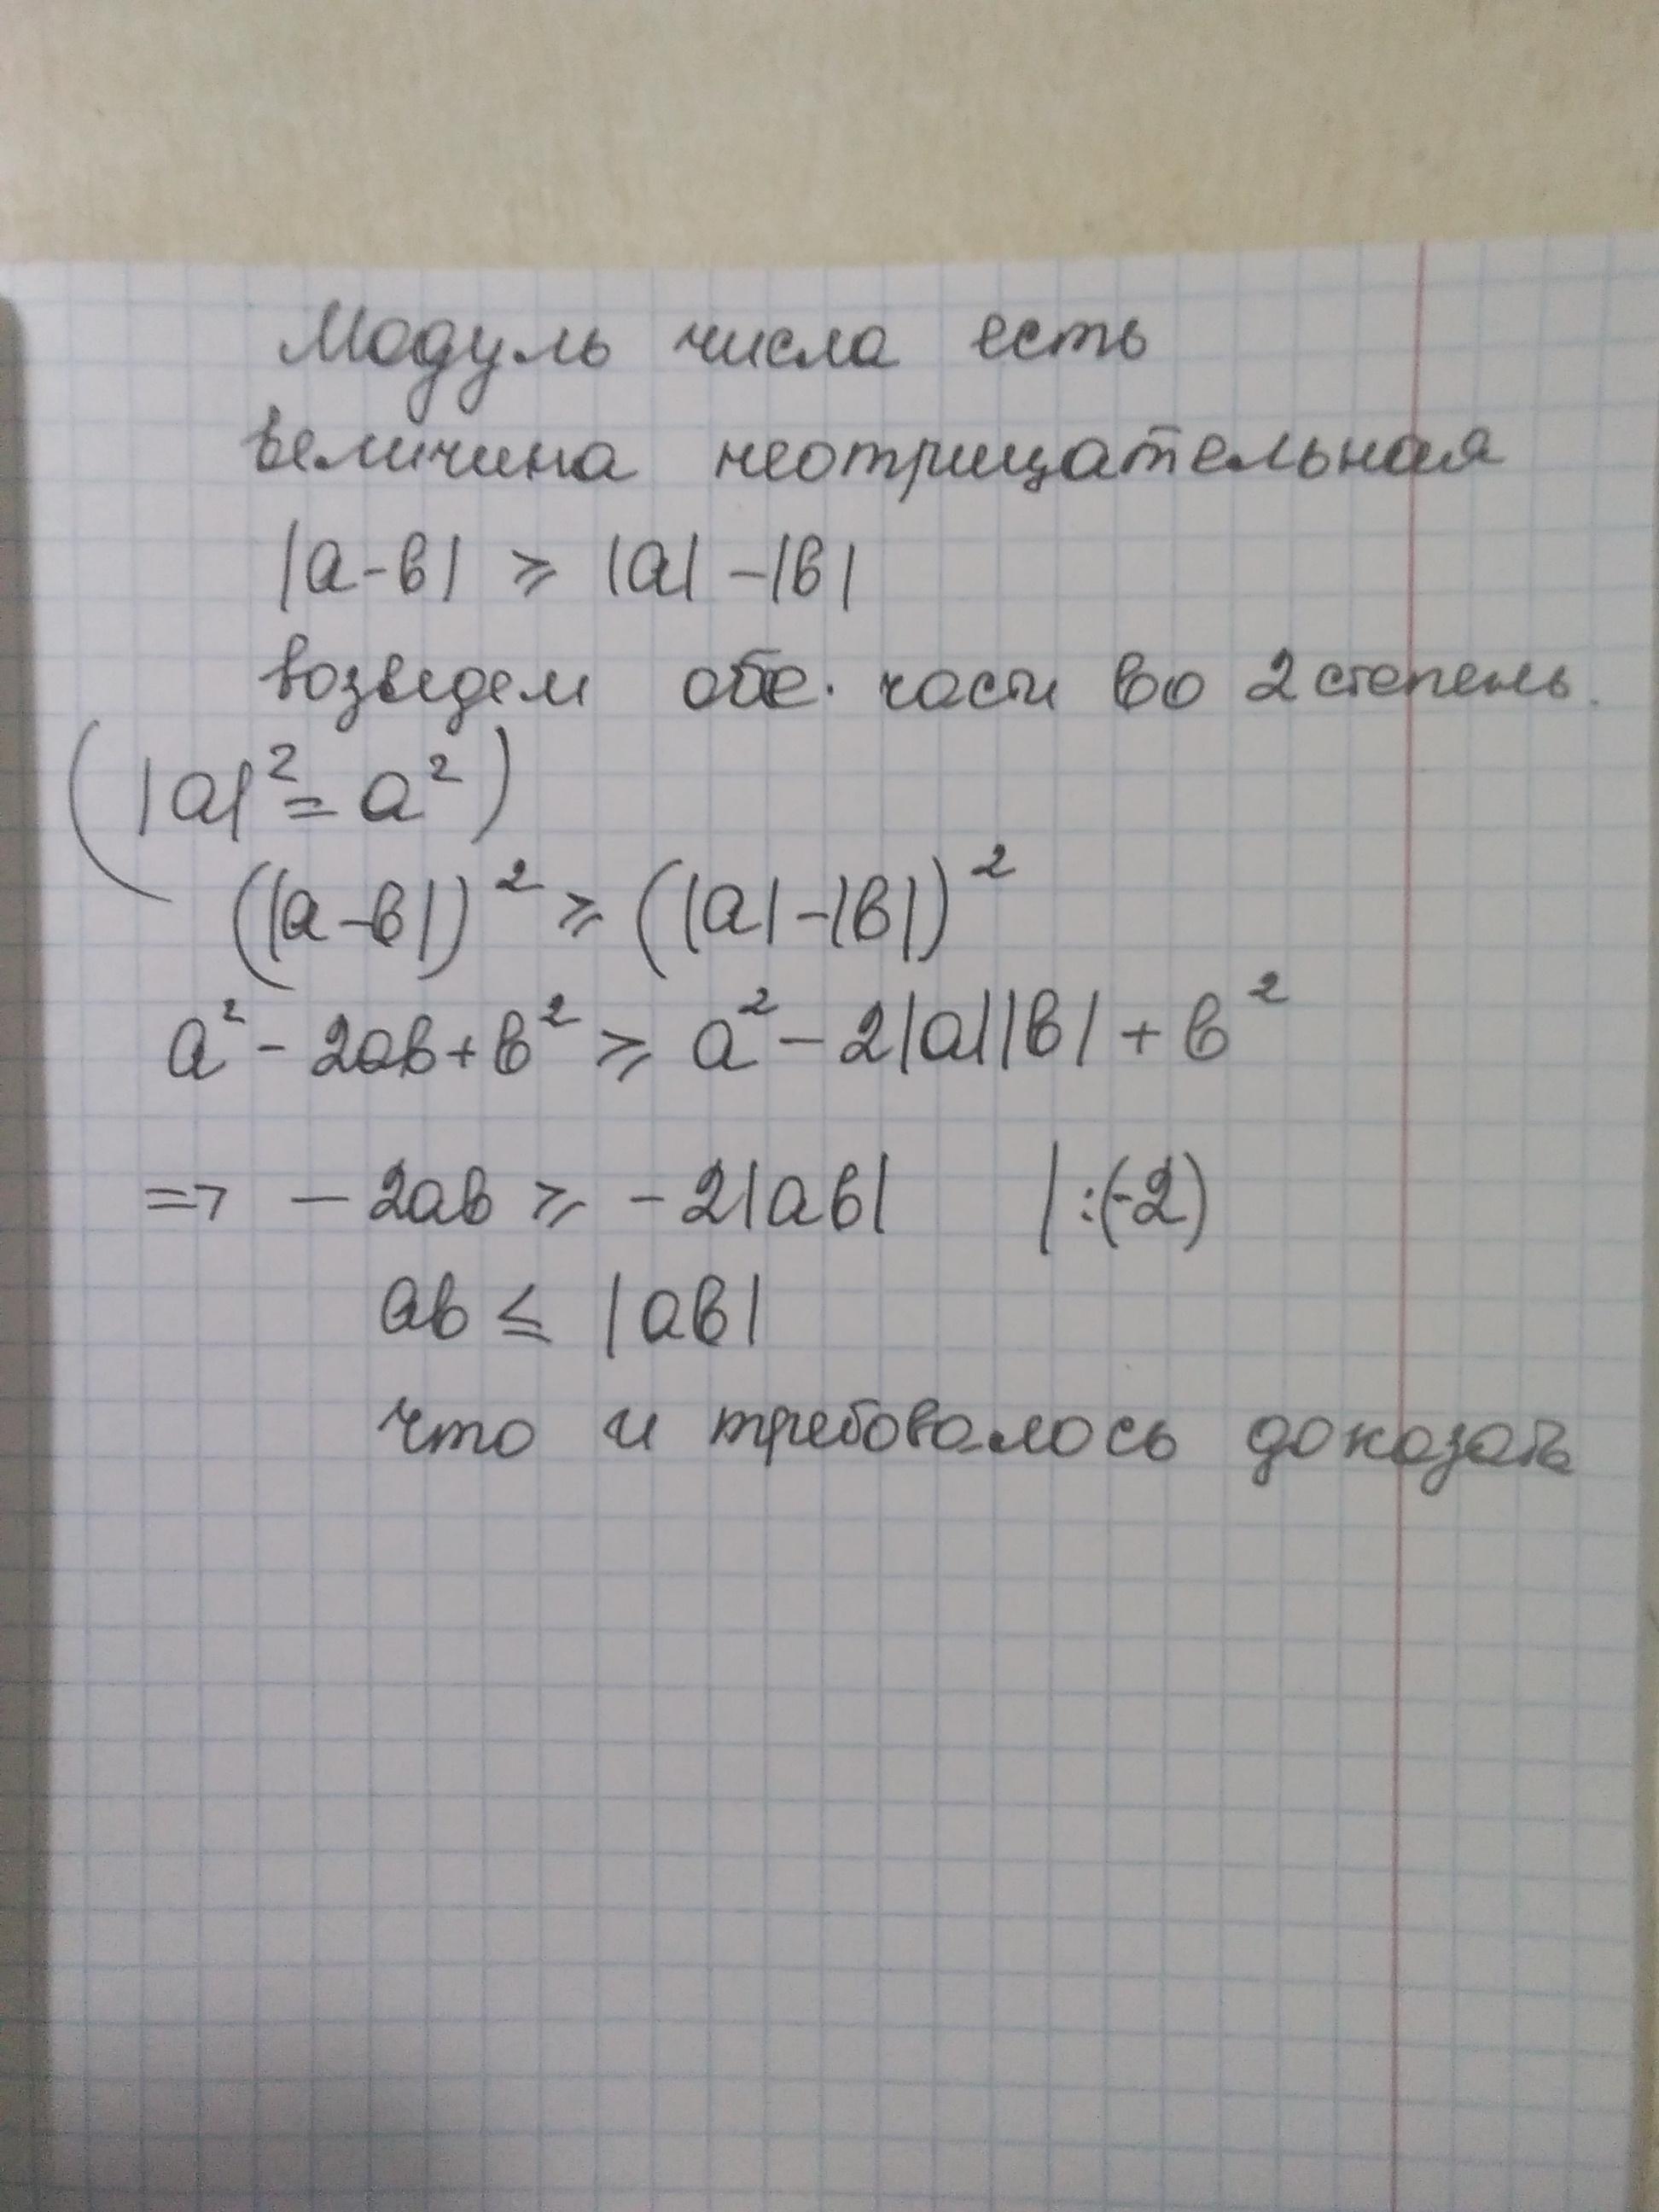 Модуль числа есть
величина неотрицательная
|a-в| ⩾ |a| -|в|
возведем обе части во 2 степень.
(|a|² = a²)
(|a-в|)² ⩾ (|a|-|в|)²
a² - 2ав + в² ⩾ a² - 2|a||в| + в²
=> - 2ав ⩾ - 2|ав| | :(-2)
ав ≤ |ав|
что и требовалось доказать